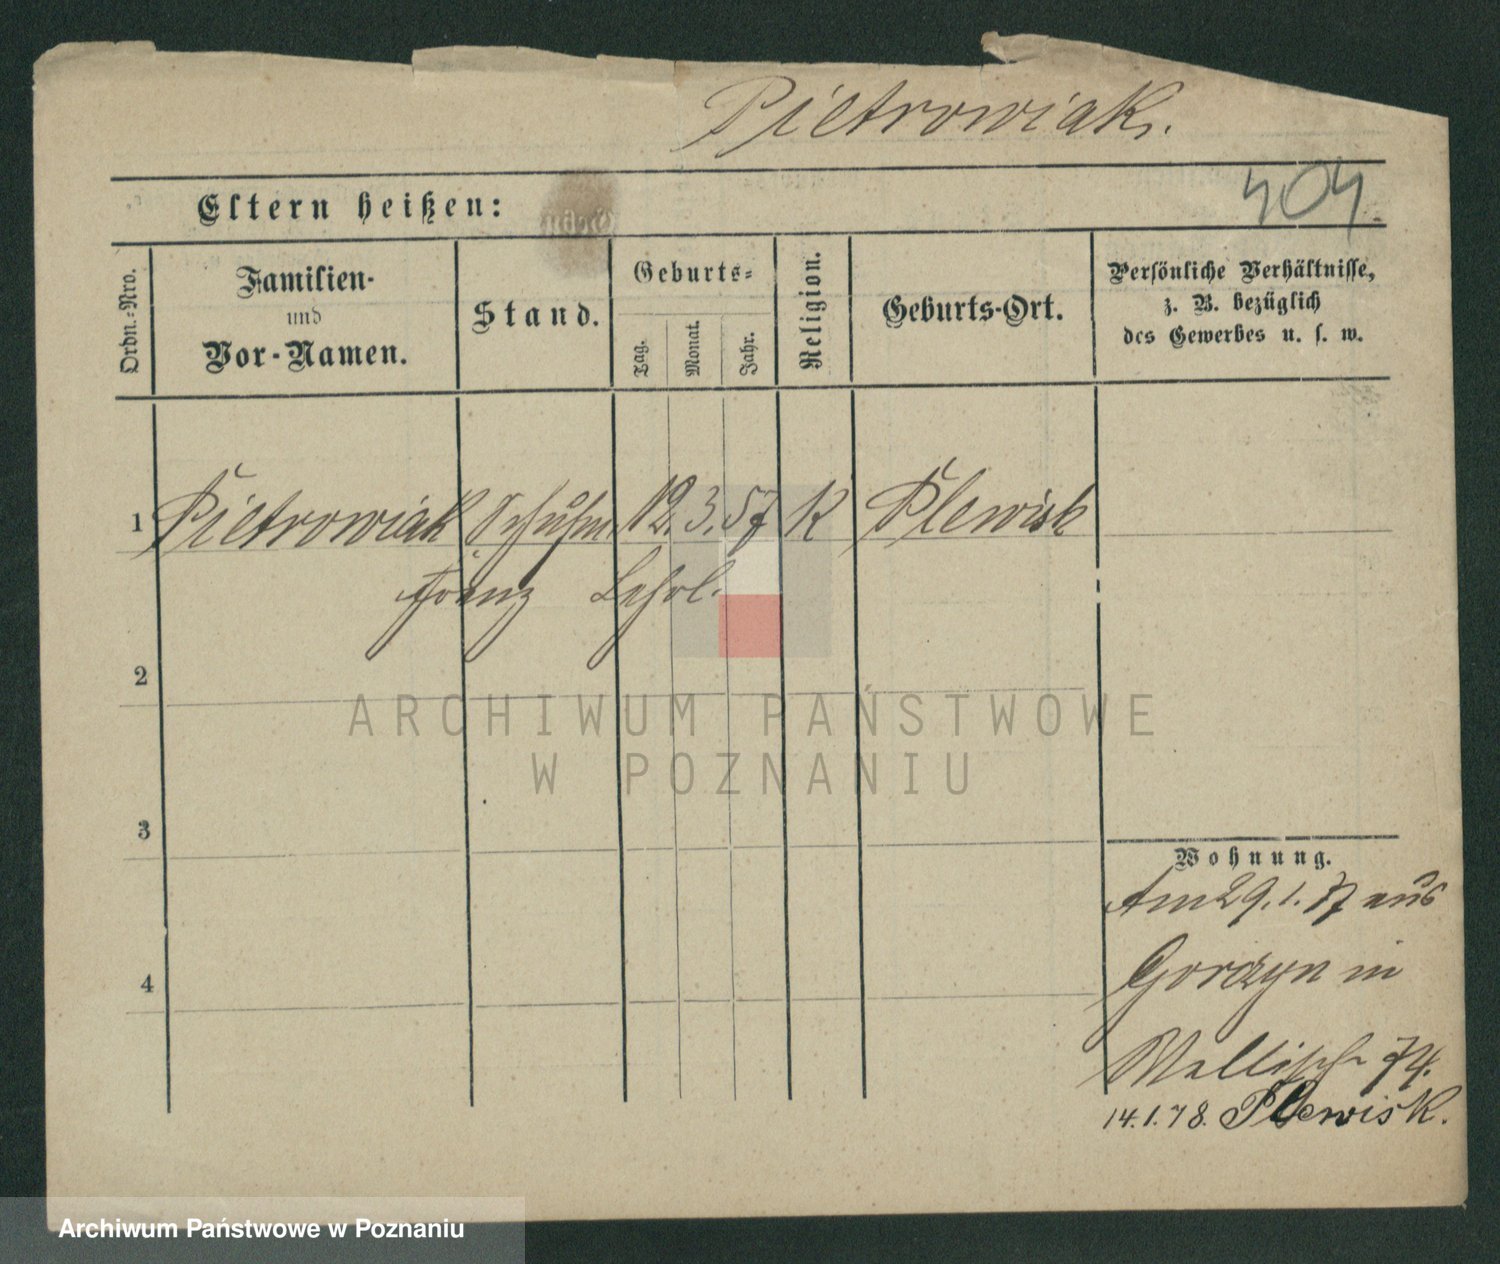 Pietrowiak.
404.
Eltern heißen:
Ordn.-Nro.
Familien-
und
Vor-Namen.
Stand.
Geburts-
Tag.
Monat.
Jahr.
Religion.
Geburts-Ort.
Persönliche Verhältnisse,
z. B. bezüglich
des Gewerbes u. s. w.
1 Pietrowiak Schuhm. 12. 3. 57 K Plewisk
Franz Lehrl.
2
ARCHIWUM PAŃSTWOWE
W POZNANIU
3
Wohnung.
Am 29. 1. 77 aus
4
Gorczyn in
Wallisch 74.
14. 1. 78. Plewisk.
Archiwum Państwowe w Poznaniu